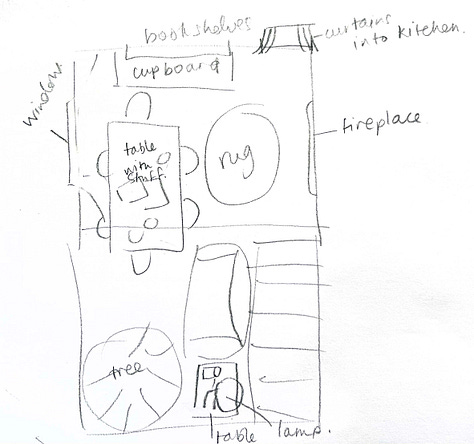 bookshelves
curtains
into kitchen.
cupboard
window
fireplace
table
with
stuff.
rug
tree
table
lamp.